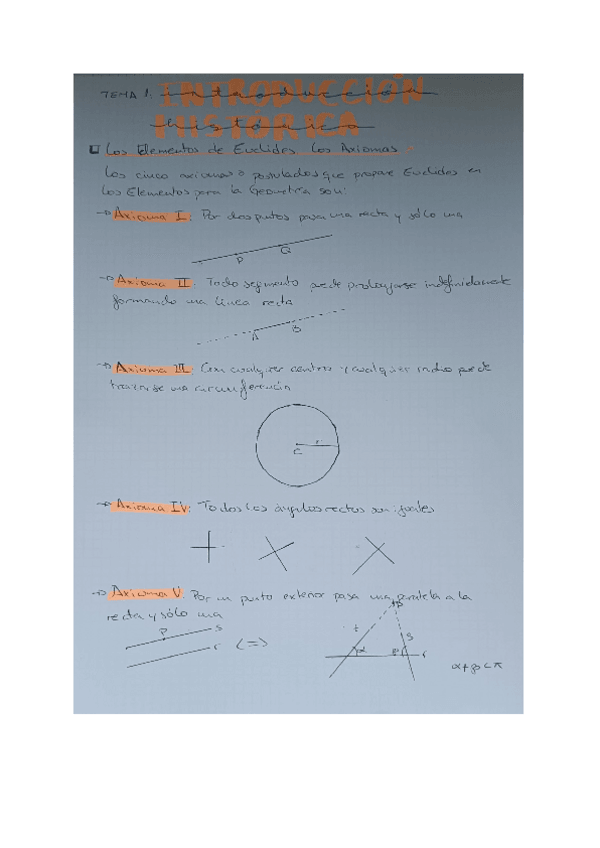 TEMA 1: INTRODUCCIÓN
HISTÓRICA
Los Elementos de Euclides. Los Axiomas
Los cinco axiomas o postulados que propone Euclides en
Los Elementos para la Geometría son:
→ Axioma I: Por dos puntos pasa una recta y sólo una
P Q
→ Axioma II: Todo segmento puede prolongarse indefinidamente
formando una línea recta
A B
→ Axioma III: Con cualquier centro y cualquier radio puede
trazarse una circunferencia
C r
→ Axioma IV: Todos los ángulos rectos son iguales
→ Axioma V: Por un punto exterior pasa una paralela a la
recta y sólo una
P s
r (=>)
t P s
α β r
α+β<π